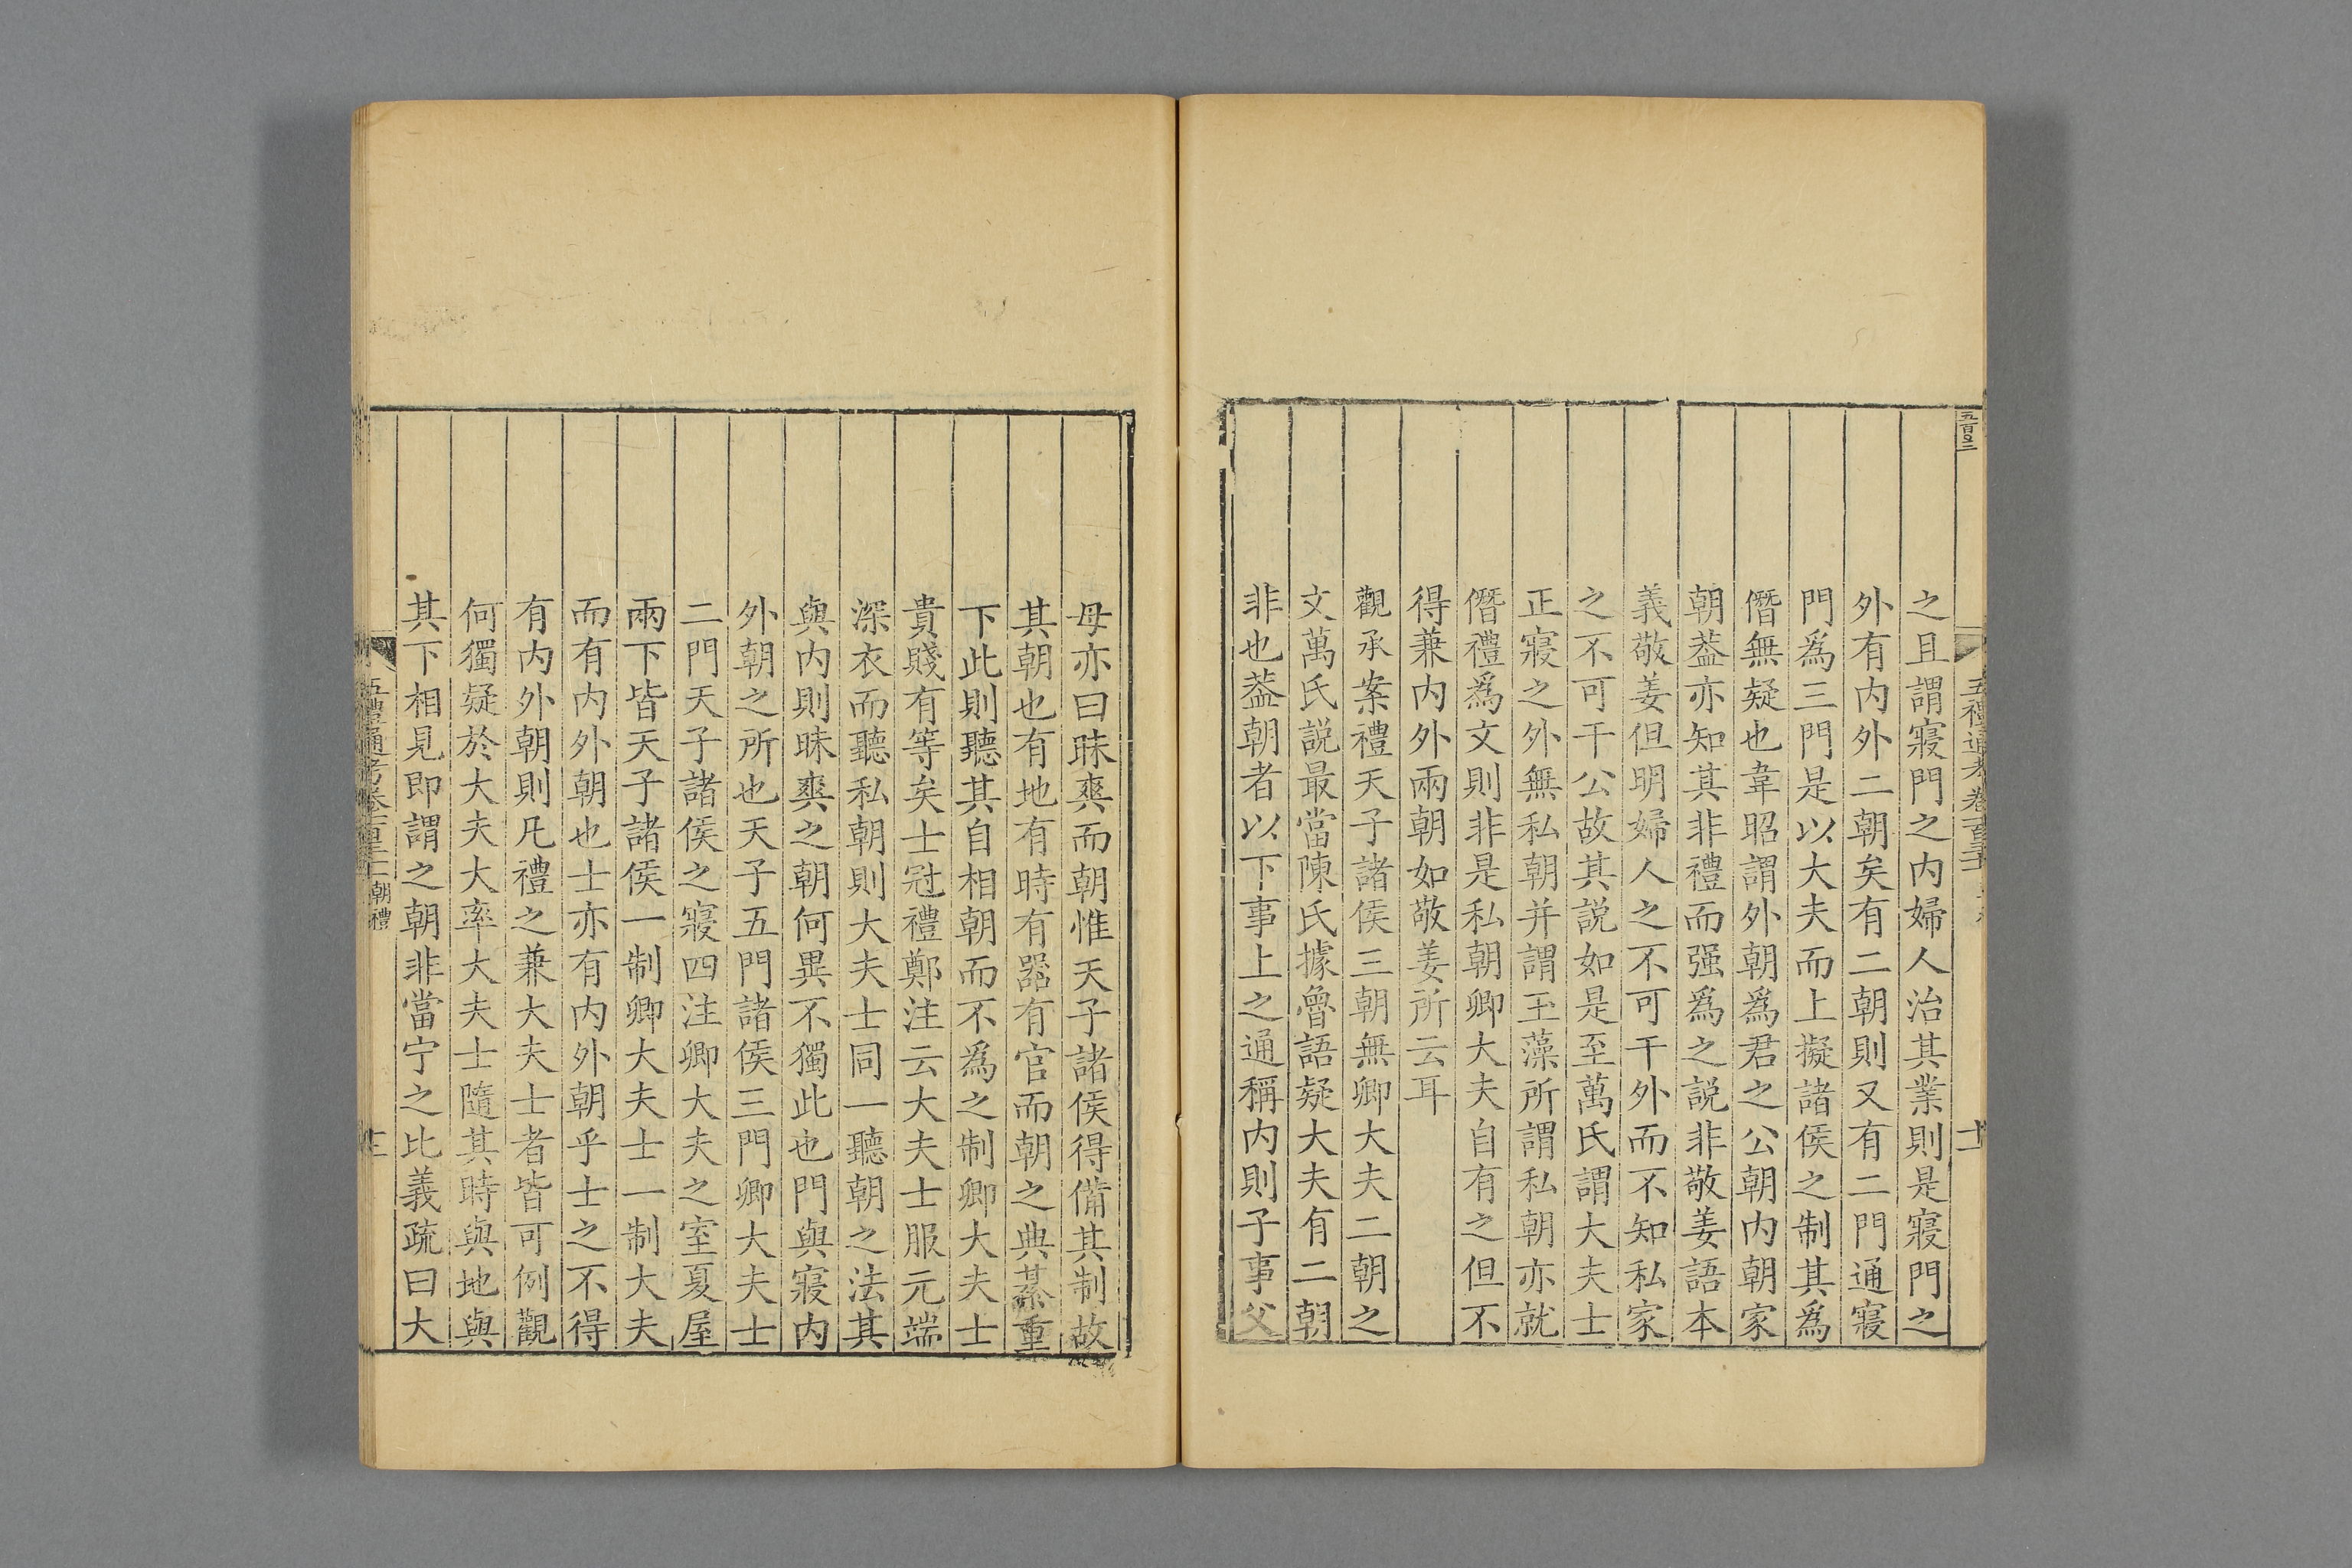 之且謂寢門之内婦人治其業則是寢門之
外有内外二朝矣有二朝則又有二門通寢
門爲三門是以大夫而上擬諸侯之制其爲
僭無疑也韋昭謂外朝爲君之公朝内朝家
朝葢亦知其非禮而强爲之説非敬姜語本
義敬姜但明婦人之不可干外而不知私家
之不可干公故其説如是至萬氏謂大夫士
正寢之外無私朝并謂玉藻所謂私朝亦就
僭禮爲文則非是私朝卿大夫自有之但不
得兼内外兩朝如敬姜所云耳
觀承案禮天子諸侯三朝無卿大夫二朝之
文萬氏説最當陳氏據魯語疑大夫有二朝
非也葢朝者以下事上之通稱内則子事父
母亦曰昧爽而朝惟天子諸侯得備其制故
其朝也有地有時有器有官而朝之典綦重
下此則聽其自相朝而不爲之制卿大夫士
貴賤有等矣士冠禮鄭注云大夫士服元端
深衣而聽私朝則大夫士同一聽朝之法其
與内則昧爽之朝何異不獨此也門與寢内
外朝之所也天子五門諸侯三門卿大夫士
二門天子諸侯之寢四注卿大夫之室夏屋
兩下皆天子諸侯一制卿大夫士一制大夫
而有内外朝也士亦有内外朝乎士之不得
有内外朝則凡禮之兼大夫士者皆可例觀
何獨疑於大夫大率大夫士隨其時與地與
其下相見即謂之朝非當宁之比義疏曰大
五禮通考卷 朝禮